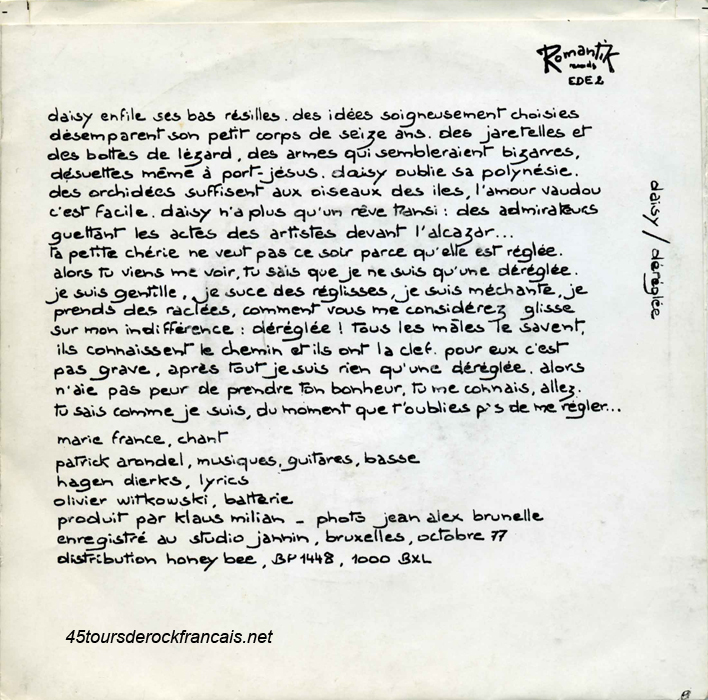 Romantik
records
EDE 2
daisy enfile ses bas résilles. des idées soigneusement choisies
désemparent son petit corps de seize ans. des jaretelles et
des bottes de lézard, des armes qui sembleraient bizarres,
désuettes même à port-jésus. daisy oublie sa polynésie.
des orchidées suffisent aux oiseaux des iles, l'amour vaudou
c'est facile. daisy n'a plus qu'un rêve transi : des admirateurs
guettant les actes des artistes devant l'alcazar...
ta petite chérie ne veut pas ce soir parce qu'elle est réglée.
alors tu viens me voir, tu sais que je ne suis qu'une déréglée.
je suis gentille, je suce des réglisses, je suis méchante, je
prends des raclées, comment vous me considérez glisse
sur mon indifférence : déréglée ! tous les mâles le savent,
ils connaissent le chemin et ils ont la clef. pour eux c'est
pas grave, après tout je suis rien qu'une déréglée. alors
n'aie pas peur de prendre ton bonheur, tu me connais, allez.
tu sais comme je suis, du moment que t'oublies p's de me régler...
marie france, chant
patrick arondel, musiques, guitares, basse
hagen dierks, lyrics
olivier witkowski, batterie
produit par klaus milian - photo jean alex brunelle
enregistré au studio jannin, bruxelles, octobre 77
distribution honey bee, BP 1448, 1000 BXL
daisy / déréglée
45toursderockfrancais.net